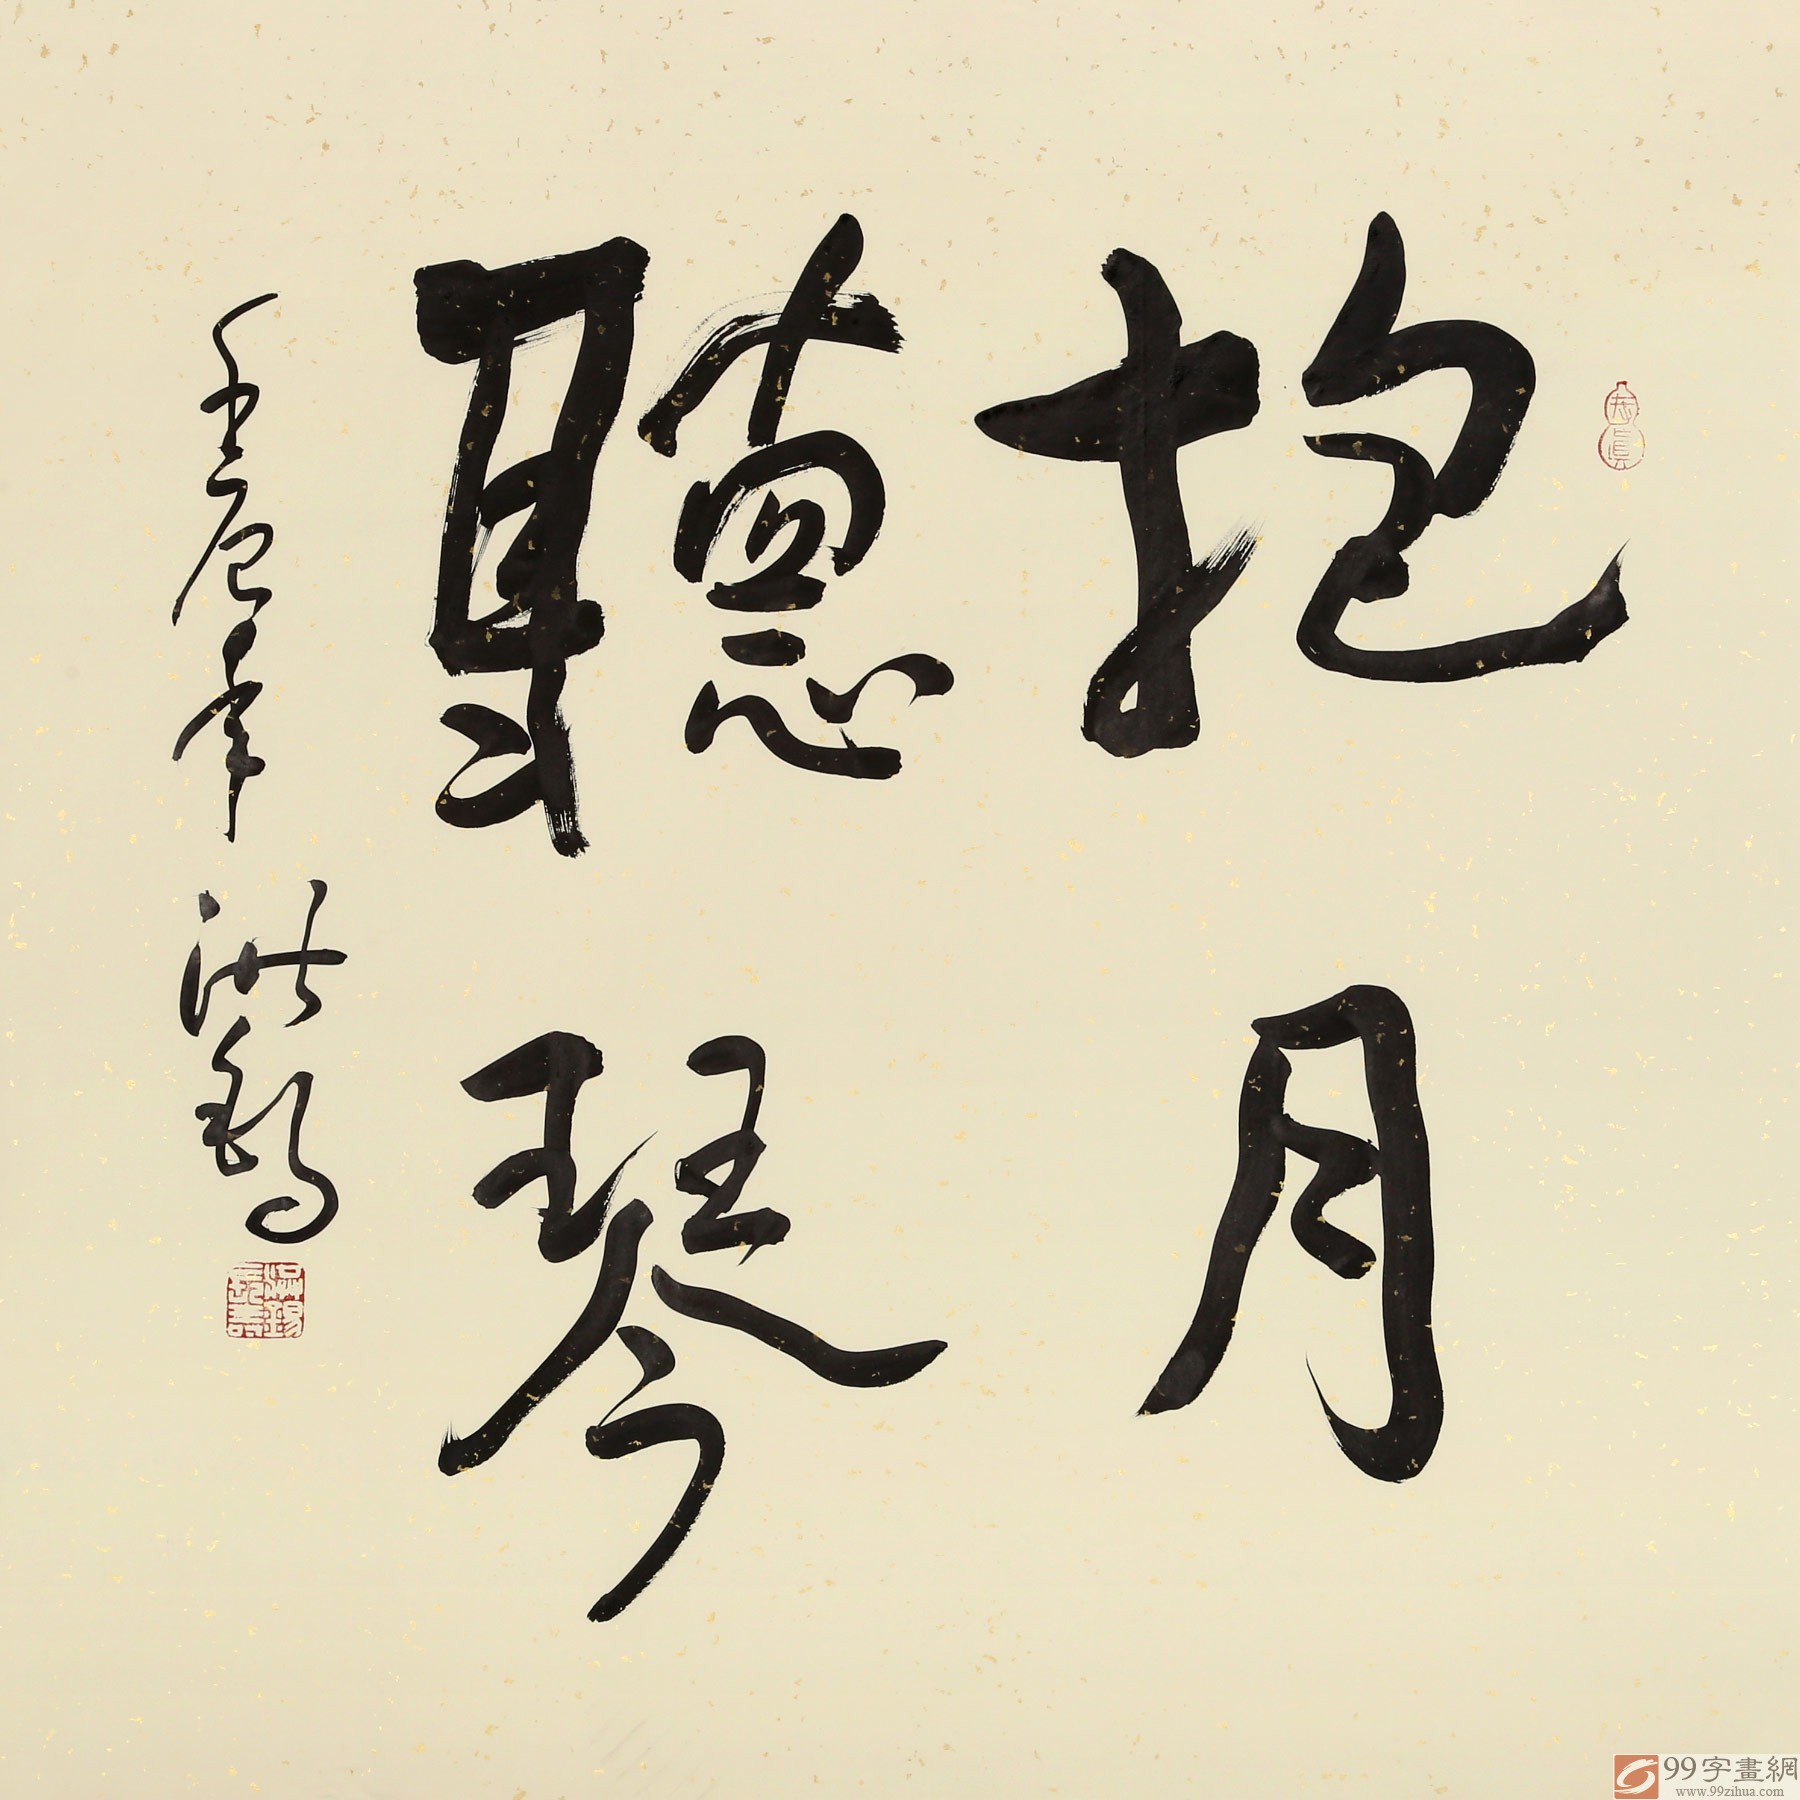 抱月
聽琴
壬辰年 洪錫
99字畫網
www.99zihua.com